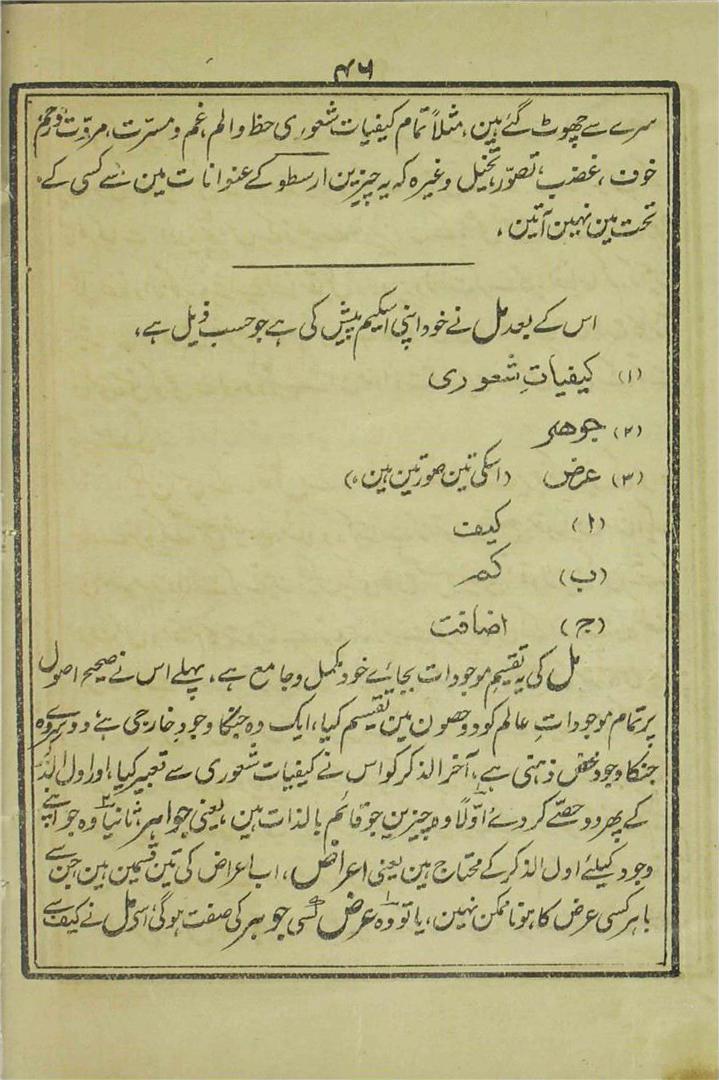 ۴۶
سرے سے چھوٹ گئے ہین، مثلاً تمام کیفیات شعوری حظ و الم، غم و مسرت، مروّت و رحم
خوف، غضب، تصوّر، تخیل وغیرہ کہ یہ چیزین ارسطو کے عنوانات مین سے کسی کے
تحت مین نہین آتین،
اس کے بعد مل نے خود اپنی اسکیم پیش کی ہے جو حسب ذیل ہے،
(۱) کیفیاتِ شعوری
(۲) جوھر
(۳) عرض (اسکی تین صورتین ہین،)
(ا) کیف
(ب) کم
(ج) اضافت
مل کی یہ تقسیمِ موجودات بجائے خود مکمل و جامع ہے، پہلے اس نے صحیح اصول
پر تمام موجوداتِ عالم کو دو حصون مین تقسیم کیا، ایک وہ جنکا وجود خارجی ہے دوسرے وہ
جنکا وجود محض ذہنی ہے، آخر الذکر کو اس نے کیفیات شعوری سے تعبیر کیا، اور اول الذکر
کے پھر دو حصّے کر دئے اوّلاً وہ چیزین جو قائم بالذات ہین، یعنی جواہر، ثانیاً وہ جو اپنے
وجود کیلئے اول الذکر کے محتاج ہین یعنی اعراض، اب اعراض کی تین قسمین ہین جن سے
باہر کسی عرض کا ہونا ممکن نہین، یا تو وہ عرض کسی جوہر کی صفت ہوگی، اسی مل نے کیف سے